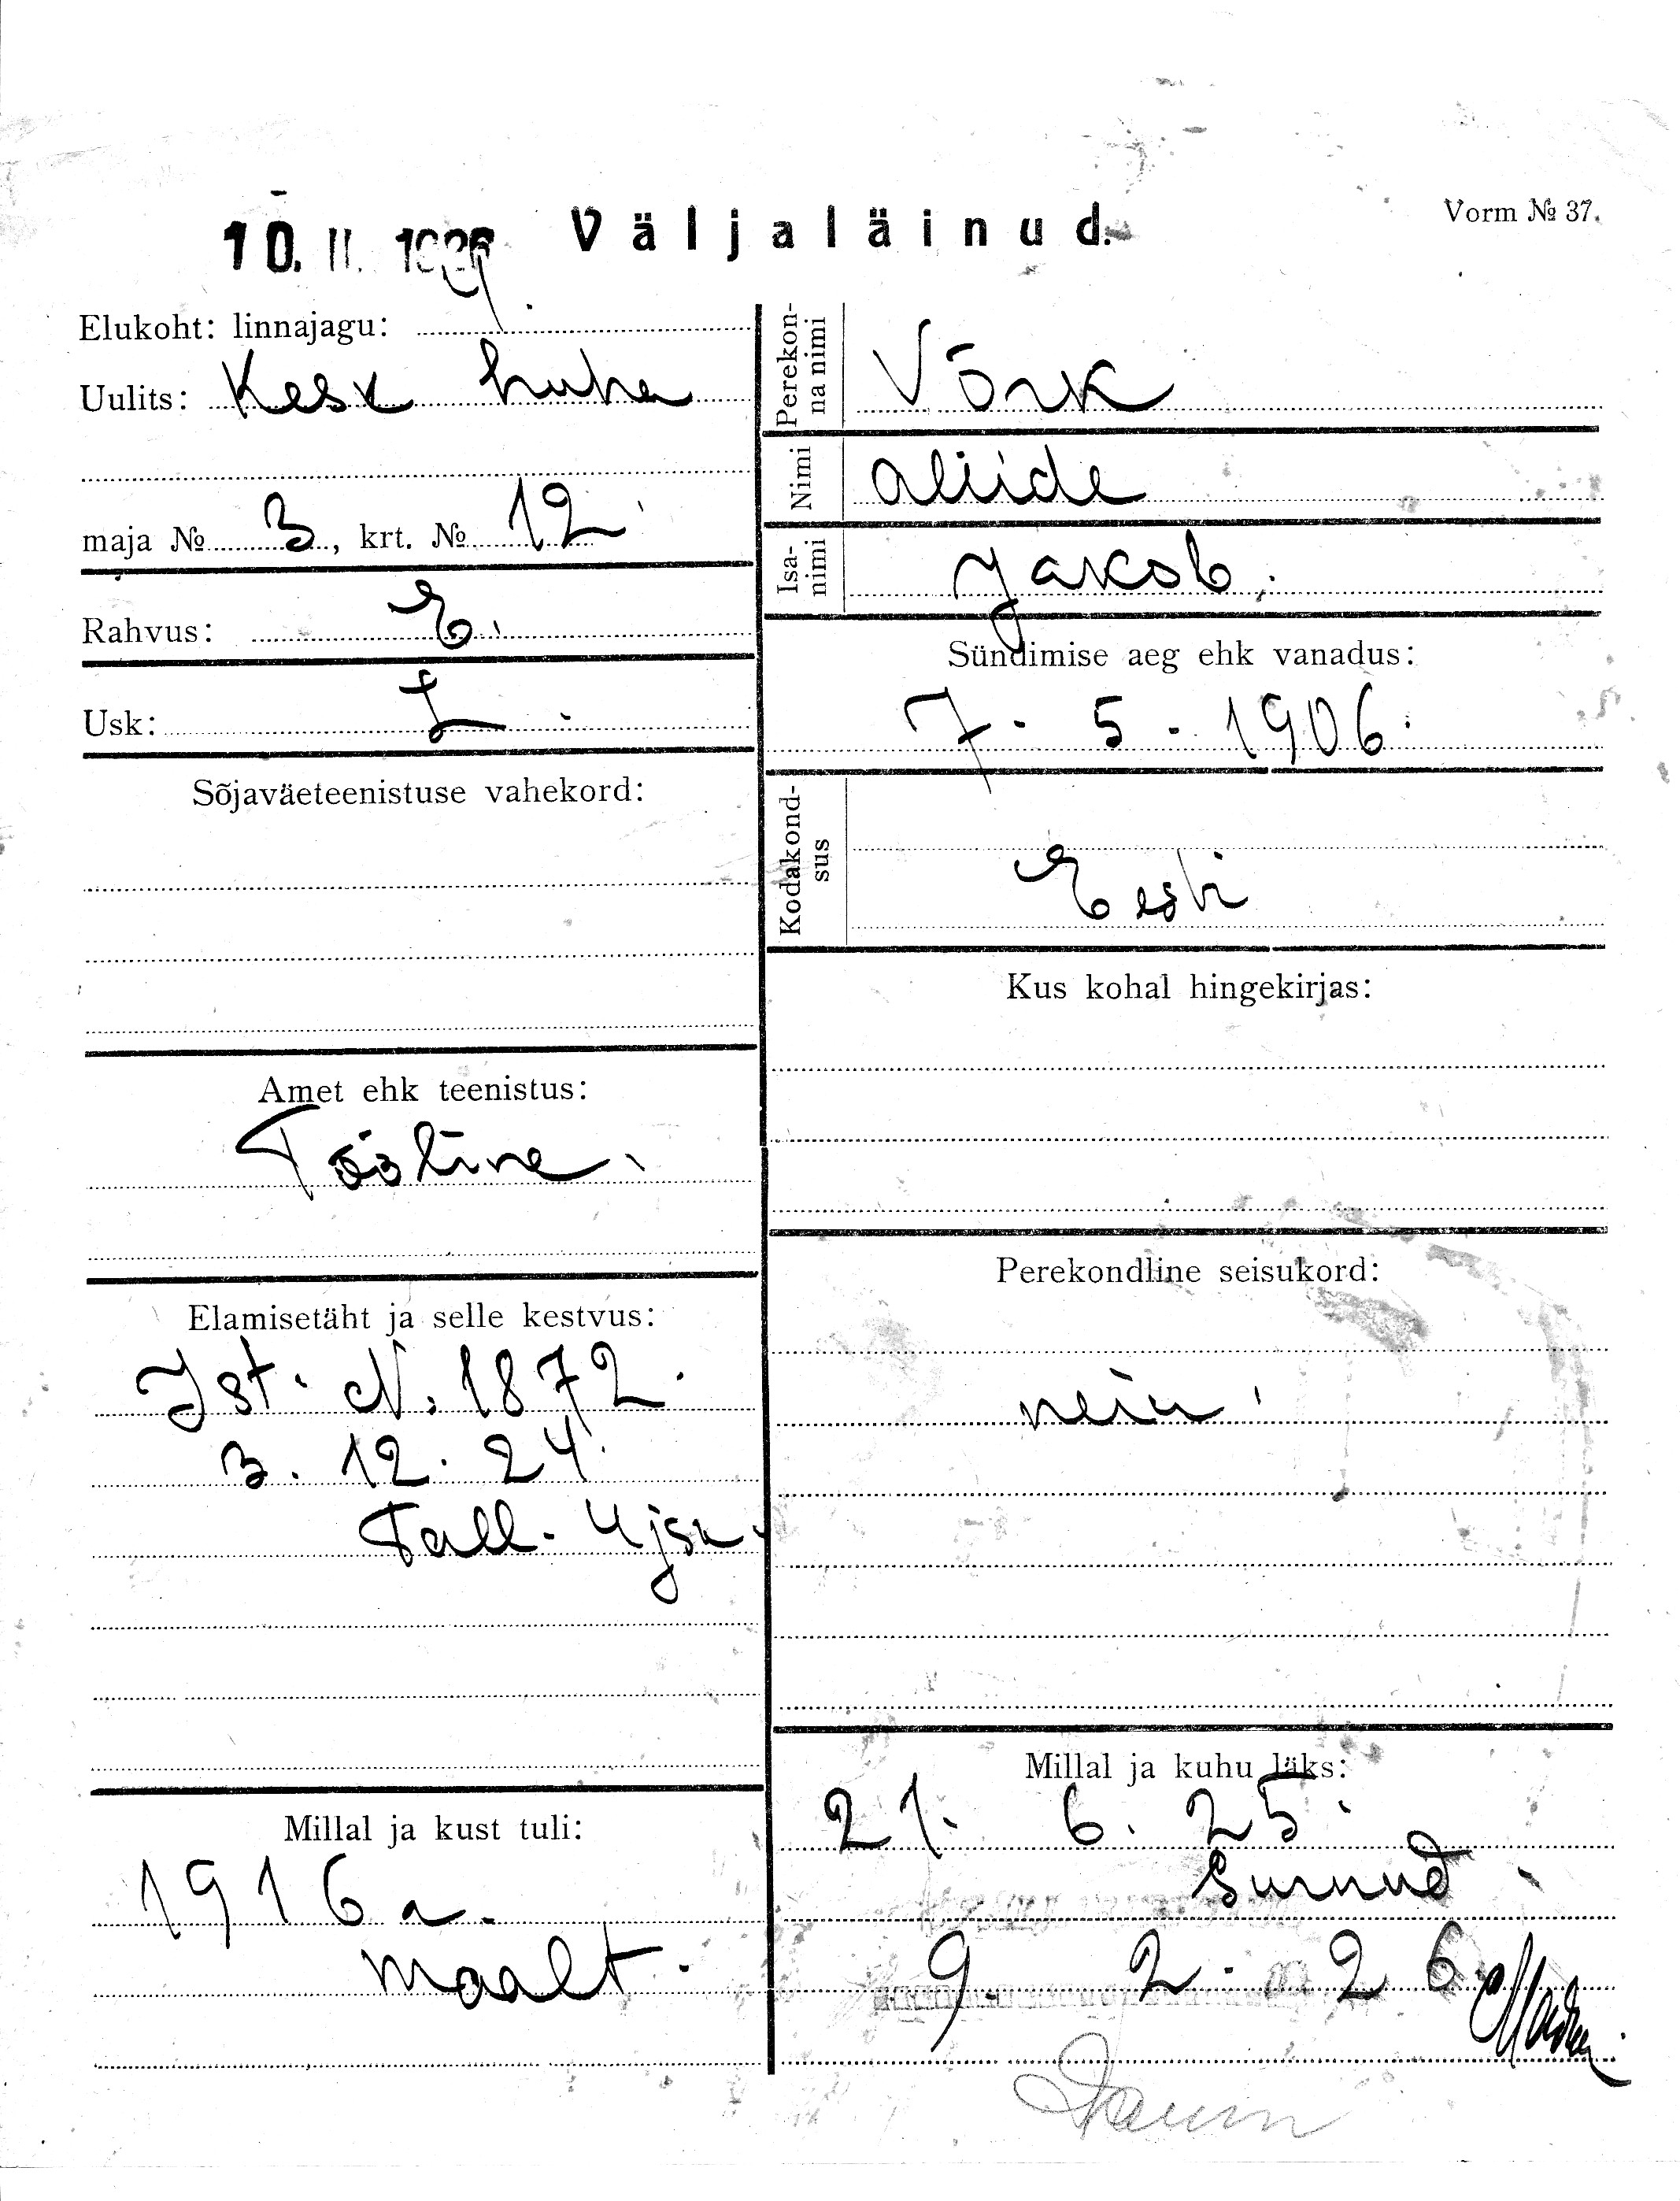 Vorm № 37.
10. II. 1926 Väljaläinud.
Elukoht: linnajagu:
Uulits: Kesk
maja № 3, krt. № 12
Rahvus: E.
Usk: L
Sõjaväeteenistuse vahekord:
Amet ehk teenistus:
Tööline.
Elamisetäht ja selle kestvus:
Ist. N. 1872.
3. 12. 24.
Tall. Ujsk.
Millal ja kust tuli:
1916 a.
maalt.
Perekon-
na nimi
Võrk
Nimi
Aliide
Isa-
nimi
Jakob.
Sündimise aeg ehk vanadus:
7. 5. 1906.
Kodakond-
sus
Eesti
Kus kohal hingekirjas:
Perekondline seisukord:
neiu.
Millal ja kuhu läks:
21. 6. 25.
Surnud.
9. 2. 26